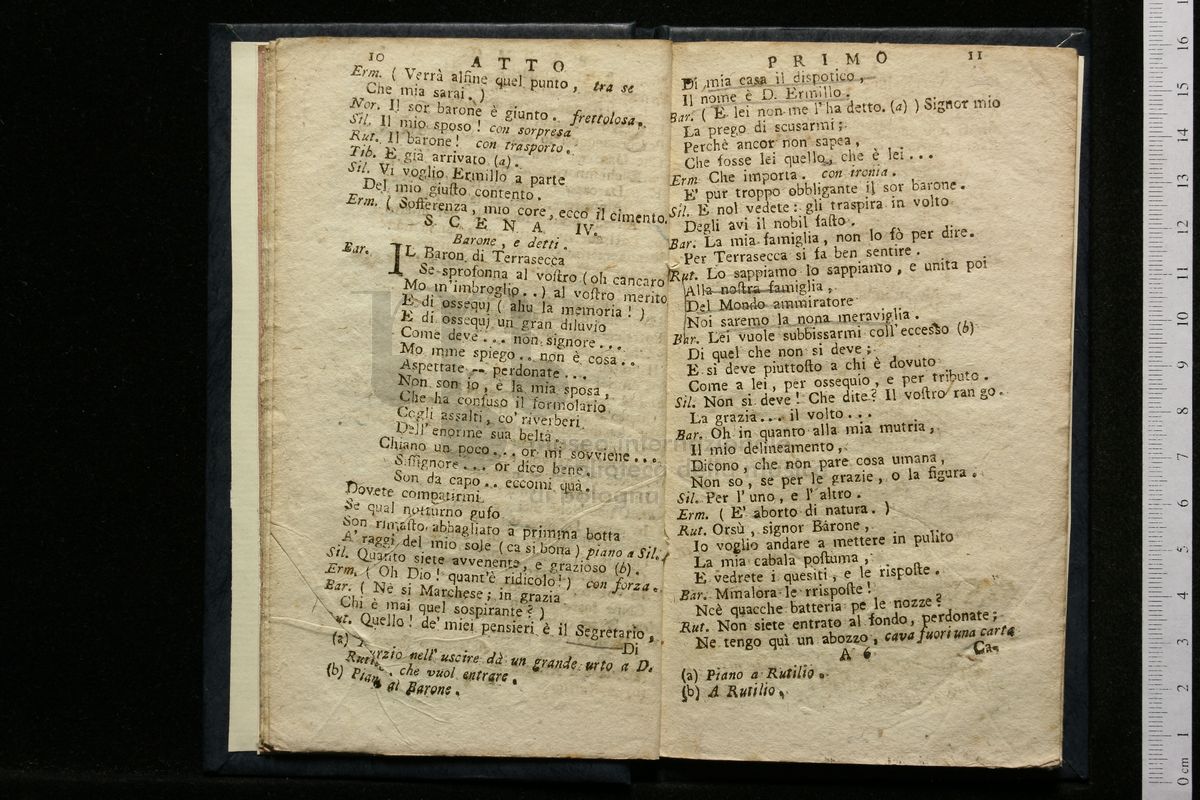 10 ATTO
Erm. ( Verrà alfine quel punto, tra se
Che mia sarai. )
Nor. Il sor barone è giunto. frettolosa.
Sil. Il mio sposo! con sorpresa
Rut. Il barone! con trasporto.
Tib. E già arrivato (a).
Sil. Vi voglio Ermillo a parte
Del mio giusto contento.
Erm. ( Sofferenza, mio core, ecco il cimento.
SCENA IV.
Barone, e detti.
Bar. IL Baron di Terrasecca
Se sprofonna al vostro (oh cancaro
Mo m'imbroglio..) al vostro merito
E di ossequj ( ahu la memoria! )
E di ossequj un gran diluvio
Come deve... non signore...
Mo mme spiego.. non è cosa..
Aspettate -- perdonate...
Non son io, è la mia sposa,
Che ha confuso il formolario
Cogli assalti, co' riverberi
Dell'enorme sua beltà.
Chiano un poco... or mi sovviene...
Sissignore... or dico bene.
Son da capo.. eccomi quà.
Dovete compatirmi
Se qual notturno gufo
Son rimasto abbagliato a primma botta
A' raggi del mio sole (ca si bona) piano a Sil.
Sil. Quanto siete avvenente, e grazioso (b).
Erm. ( Oh Dio! quant'è ridicolo!) con forza.
Bar. ( Nè si Marchese; in grazia
Chi è mai quel sospirante? )
Rut. Quello! de' miei pensieri è il Segretario,
Di
(a) Tiburzio nell'uscire dà un grande urto a D.
Rutilio, che vuol entrare.
(b) Piano al Barone.
PRIMO 11
Di mia casa il dispotico,
Il nome è D. Ermillo.
Bar. ( E lei non me l'ha detto. (a) ) Signor mio
La prego di scusarmi;
Perchè ancor non sapea,
Che fosse lei quello, che è lei...
Erm Che importa. con ironia.
E' pur troppo obbligante il sor barone.
Sil. E nol vedete: gli traspira in volto
Degli avi il nobil fasto.
Bar. La mia famiglia, non lo fò per dire.
Per Terrasecca si fa ben sentire.
Rut. Lo sappiamo lo sappiamo, e unita poi
Alla nostra famiglia,
Del Mondo ammiratore
Noi saremo la nona meraviglia.
Bar. Lei vuole subbissarmi coll'eccesso (b)
Di quel che non si deve;
E si deve piuttosto a chi è dovuto
Come a lei, per ossequio, e per tributo.
Sil. Non si deve! Che dite? Il vostro ran go.
La grazia... il volto...
Bar. Oh in quanto alla mia mutria,
Il mio delineamento,
Dicono, che non pare cosa umana,
Non so, se per le grazie, o la figura.
Sil. Per l'uno, e l'altro.
Erm. ( E' aborto di natura. )
Rut. Orsù, signor Barone,
Io voglio andare a mettere in pulito
La mia cabala postuma,
E vedrete i quesiti, e le risposte.
Bar. Mmalora le rrisposte!
Ncè quacche batteria pe le nozze?
Rut. Non siete entrato al fondo, perdonate;
Ne tengo quì un abozzo, cava fuori una carta
A 6 Ca-
(a) Piano a Rutilio.
(b) A Rutilio.